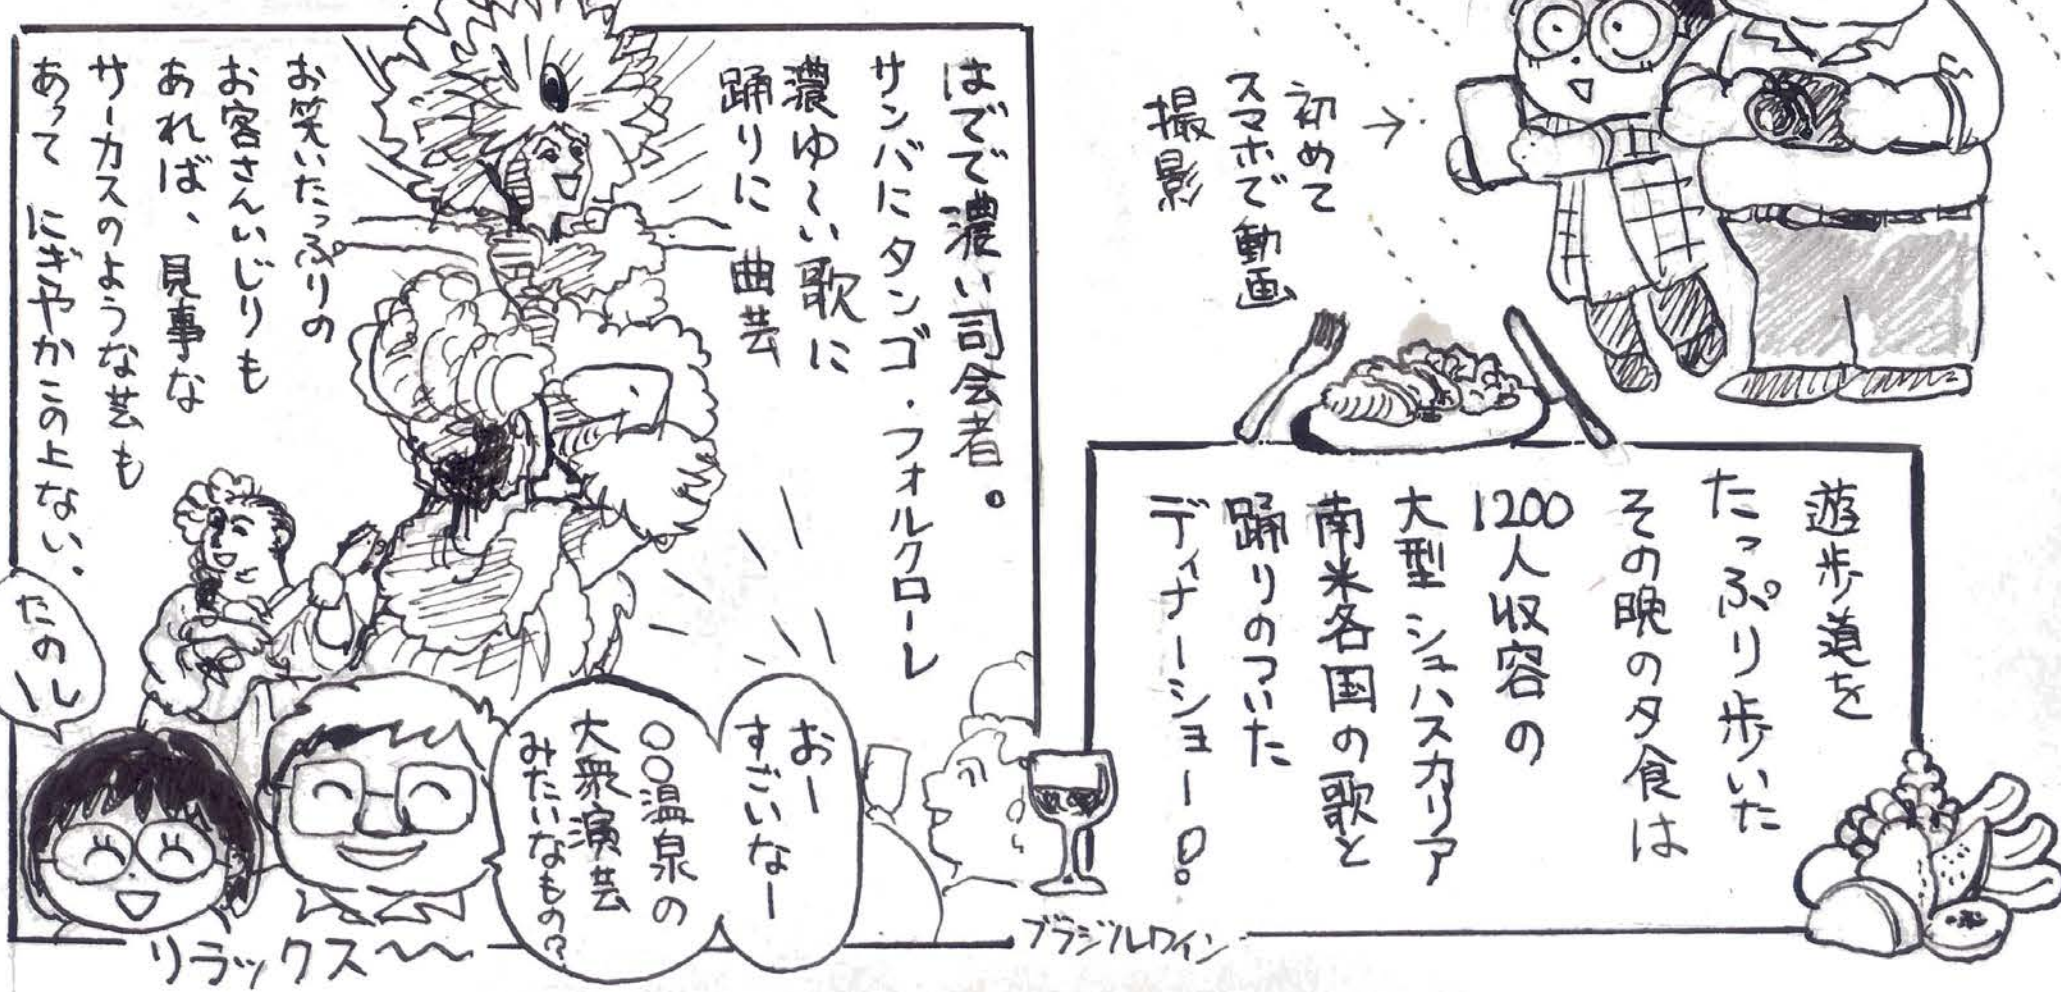 初めて
スマホで動画
撮影
遊歩道を
たっぷり歩いた
その晩の夕食は
1200人収容の
大型シュハスカリア
南米各国の歌と
踊りのついた
ディナーショー!
ブラジルワイン
はでで濃い司会者。
サンバにタンゴ・フォルクローレ
濃ゆ~い歌に
踊りに 曲芸
お笑いたっぷりの
お客さんいじりも
あれば、見事な
サーカスのような芸も
あって にぎやかこの上ない。
おー
すごいなー
○○温泉の
大衆演芸
みたいなもの?
たのしー
リラックス~~